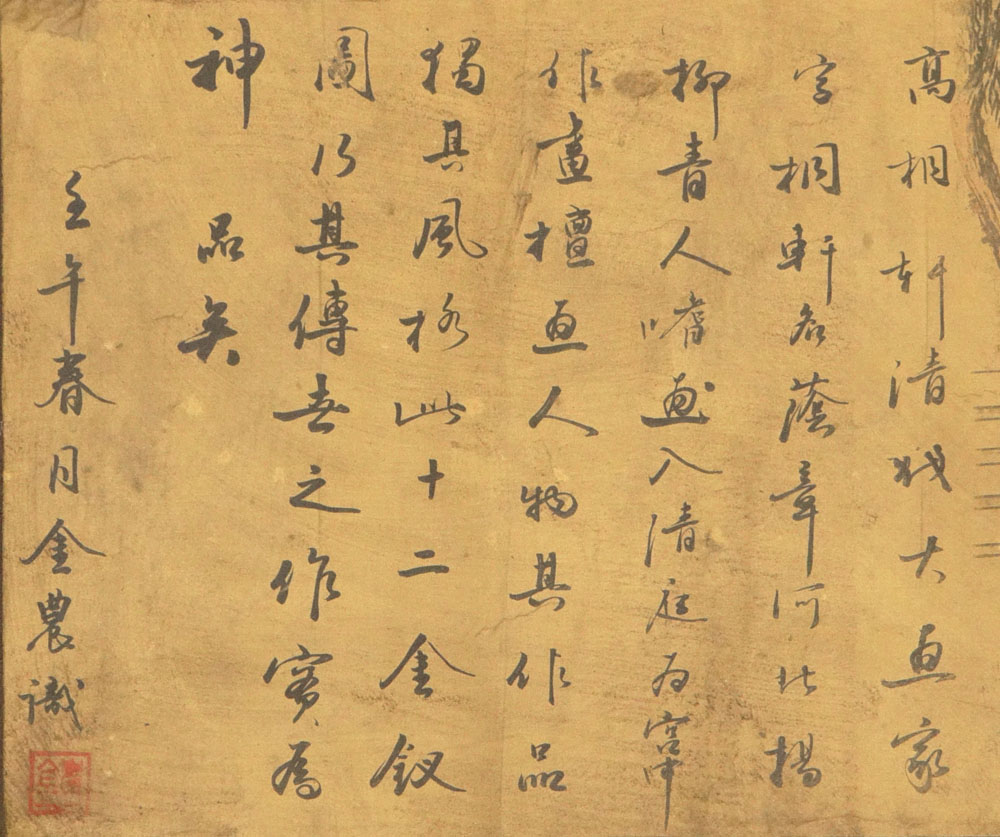 高桐軒清大画家
字桐軒名蔭章河北楊
柳青人嗜画入清庭为宫中
作畫擅画人物其作品
獨具風格此十二金釵
圖乃其傳世之作實為
神品矣
壬午春月金農識